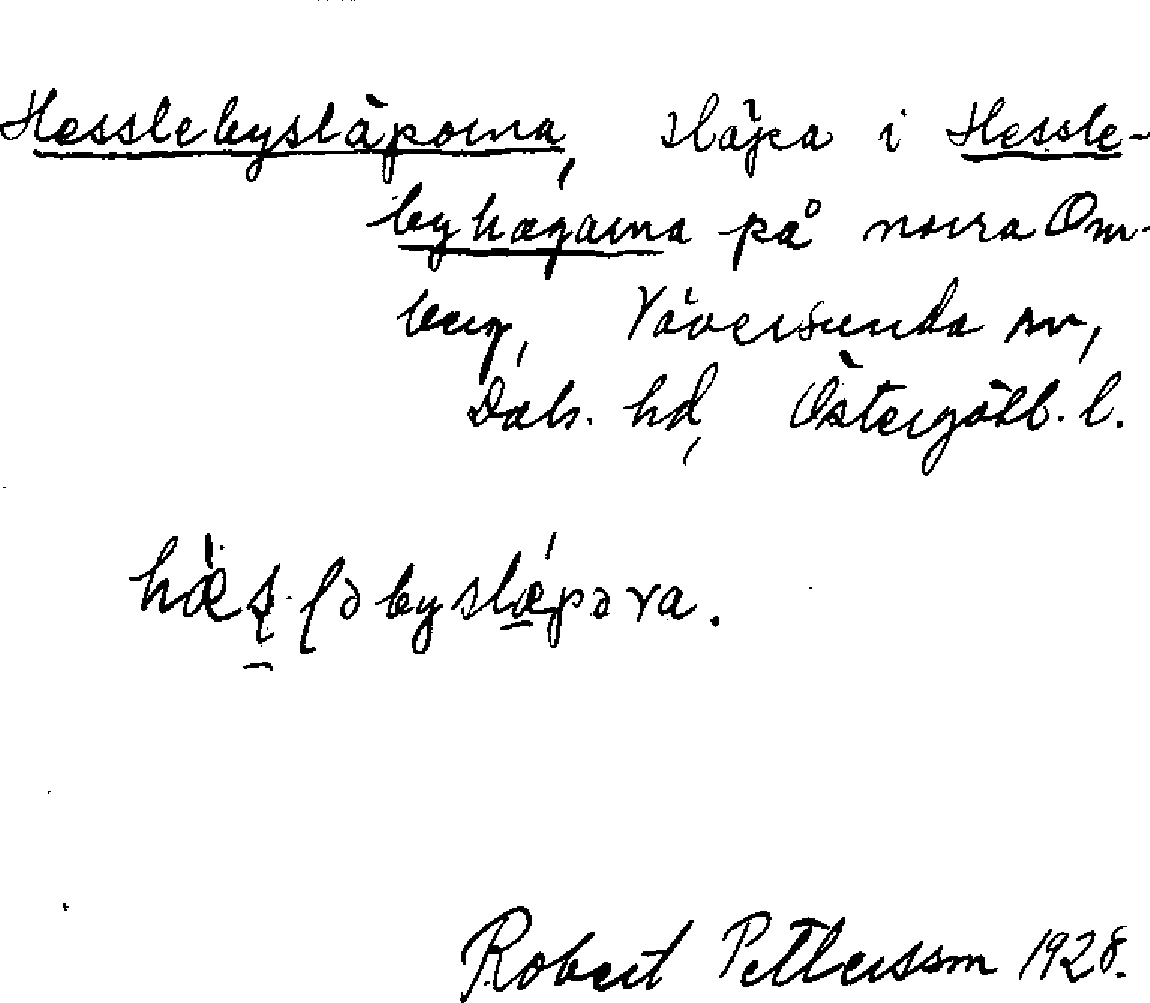 Hesslebysläporna, släpa i Hessle-
byhagarna på norra Om-
berg, Väversunda sn,
Dals. hd, Östergötl. l.
slæpəra.
Robert Pettersson 1928.